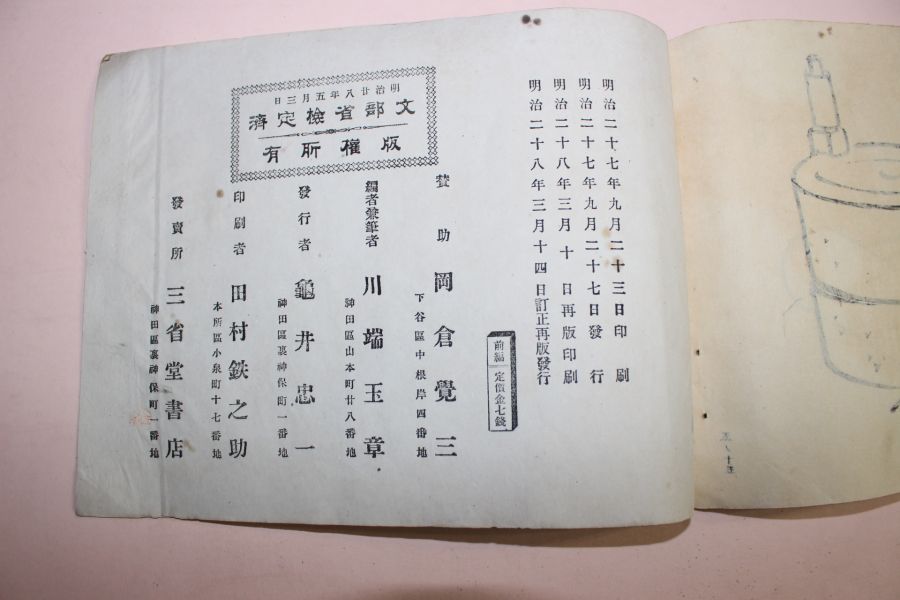 明治二十七年九月二十三日印刷
明治二十七年九月二十七日發行
明治二十八年三月十日再版印刷
明治二十八年三月十四日訂正再版發行
前編 定價金七錢
明治廿八年五月三日
文部省檢定濟
版權所有
賛助 岡倉覺三
下谷區中根岸四番地
編者兼筆者 川端玉章
神田區山本町廿八番地
發行者 龜井忠一
神田區裏神保町一番地
印刷者 田村鉄之助
本所區小泉町十七番地
發賣所 三省堂書店
神田區裏神保町一番地